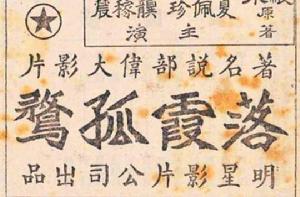 原著
夏佩珍 龔稼農
主演
著名說部偉大影片
落霞孤鶩
明星影片公司出品